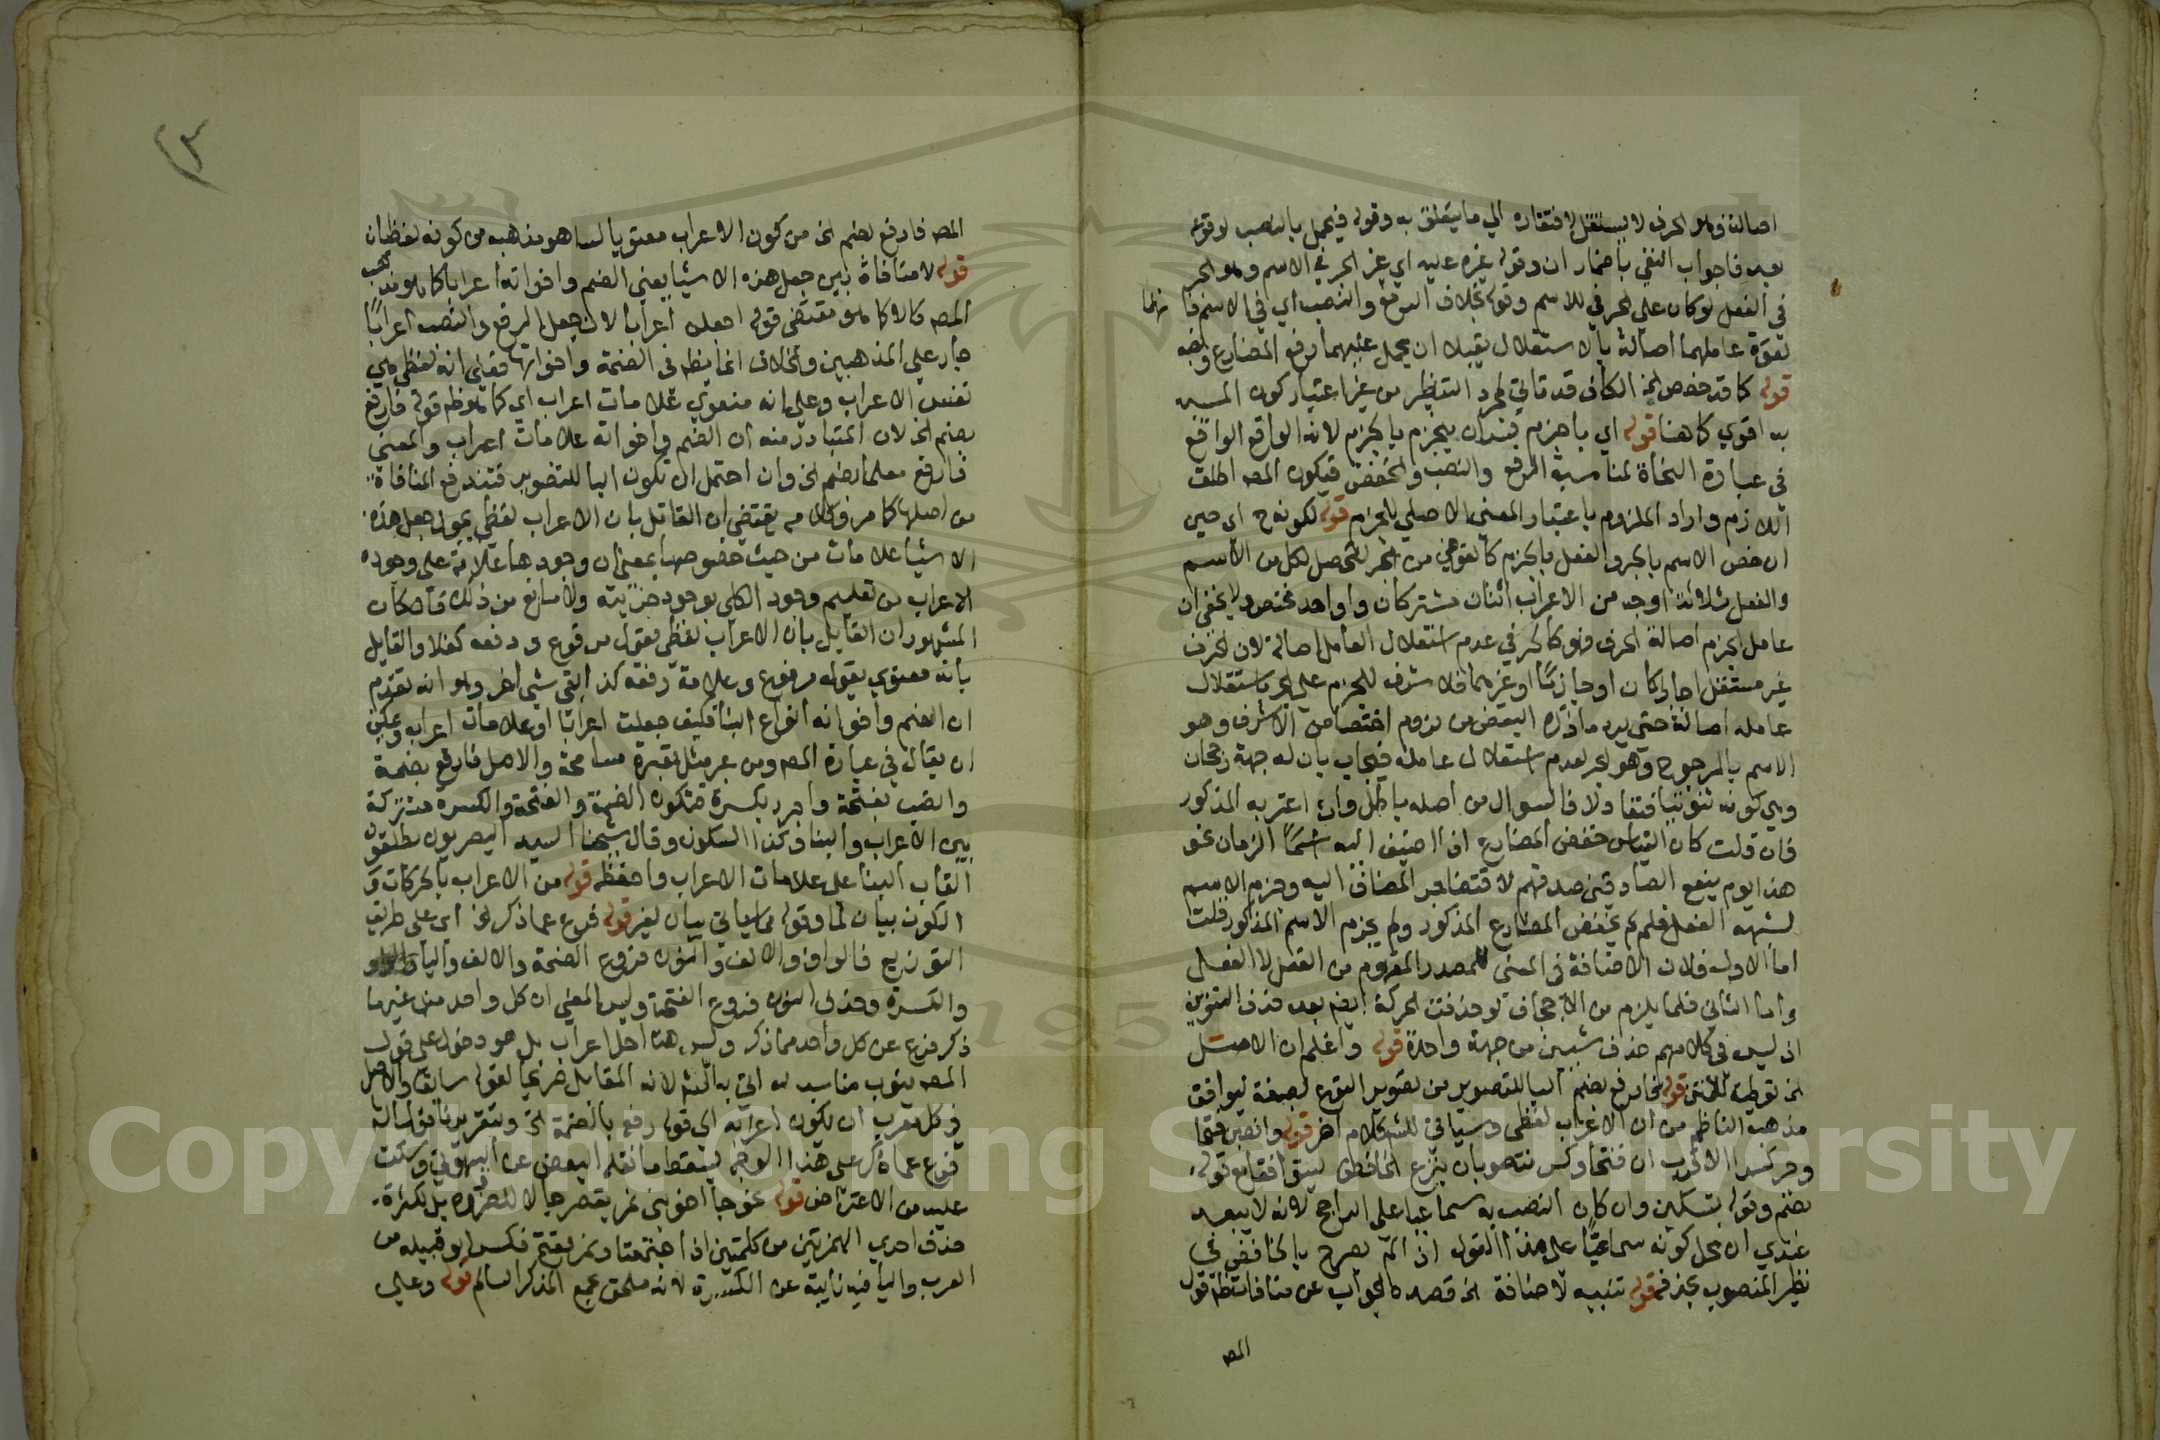 اصالة وهو الحرف لا يستقل لافتقاره الي ما يتعلق به وقوله فيحمل بالنصب لوقوعه
بعد فاجواب النفي باضمار ان وقوله غيره عليه اي غير الجر في الاسم وهو الجر
في الفعل لو كان علي الحرفي للاسم وقوله بخلاف الرفع والنصب اي في الاسم فا نهما
لقوة عاملهما اصالة بالاستقلال يقبلان ان يحمل عليهما رفع المضارع ونصبه
قوله كما قد خصص الخ الكاف قد تاتي لمجرد التنظير من غير اعتبار كون المشبه
به اقوي كما هنا قوله اي با جزم بندان ينجزم بالجزم لانه الواقع الواقع
في عبارة النحاة لمناسبة الرفع والنصب والخفض فيكون المصـ اطلق
اللازم واراد الملزوم باعتبار المعني الاصلي للجزم قوله لكونه ح اي حين
ان خص الاسم بالجر والفعل بالجزم كالعوض من الجر ليحصل لكل من الاسم
والفعل ثلاثة اوجه من الاعراب اثنان مشتركان وواحد مختص ولا يخفي ان
عامل الجزم اصالة الحرف فهو كالجر في عدم استقلال العامل اصالة لان الحرف
غير مستقل اجارا كان او جازما او غيرهما فلا شرف للجزم علي الجر باستقلال
عامله اصالة حتي يرد ما ذكره البعض من لزوم اختصاص الاشرف وهو
الاسم بالمرجوح وهو الجر لعدم استقلال عامله فيجاب بان له جهة رجحان
وهي كونه ثبوتيا فتفادلا فالسوال من اصله باطل وان اغتر به المذكور
فان قلت كان القياس خفض المضارع اذا اضيف اليه اسما الزمان نحو
هذا يوم ينفع الصادقين صدقهم لاقتضا جر المضاف اليه وجزم الاسم
لشبهه الفعل فلم لم يخفض المضارع المذكور ولم يجزم الاسم المذكور قلت
اما الاول فلان الاضافة في المعني للمصدر المفهوم من الفعل لا الفعل
واما الثاني فلما يلزم من الاجحاف لو حذفت الحركة ايضا بعد حذف التنوين
اذ ليس في كلامهم حذف شيين من جهة واحدة قوله واعلم ان الاصل
الخ توطية للمتن قوله فارفع بضم البا للتصوير من تصوير النوع بصفة ليوافق
مذهب الناظم من ان الاعراب لفظي وسياتي للش كلام اخر قوله وانصبن فتحا
وجر كسرا الاقرب ان فتحا وكسرا منصوبان بنزع الخافض ليتوافقا مع قوله
بضم وقوله بتسكين وان كان النصب به سماعيا علي الراجح لانه لا يبعد
عندي ان محل كونه سماعيا علي هذا القول اذا لم يصرح بالخافض في
نظير المنصوب بحذفه قوله تنبيه لا ضافة الخ قصده الجواب عن منافاة ظه قول
المصـ
المصـ فارفع بضم الخ من كون الاعراب معنويا لما هو مذهبه من كونه لفظيا
قوله لا منافاة بين جعل هذه الاشيا يعني الضم واخواته اعرابا كما هو مذهب
المصـ وكما هو مقتضي قوله اجعلن اعرابا لان جعل الرفع والنصب اعرابا
جار علي المذهبين والخلاف انما يظهر في الضمة واخواتها فعلي انه لفظي هي
نفس الاعراب وعلي انه معنوي علامات اعراب اي كما هو ظه قوله فارفع
بضم الخ لان المتبادر منه ان الضم واخواته علامات اعراب والمعني
فارفع معلما بضم الخ وان احتمل ان تكون البا للتصوير فتندفع المنافاة
من اصلها كما مر وكلامه يقتضي ان القائل بان الاعراب لفظي يقول جعل هذه
الاشيا علامات من حيث خصوصها بمعني ان وجودها علامة علي وجود
الاعراب من تعليم وجود الكلي بوجود جزئيه ولا مانع من ذلك فان كان
المشهور ان القايل بان الاعراب لفظي يقول مرفوع ورفعه كذا والقايل
بانه معنوي يقول مرفوع وعلامة رفعه كذا بقي شي اخر وهو انه تقدم
ان الضم واخواته انواع البنا فكيف جعلت اعرابا او علامات اعراب ويمكن
ان يقال في عبارة المصـ ومن عبر مثل تعبيره مسامحة والاصل فارفع بضمة
وانصب بفتحة واجرر بكسرة فتكون الضمة والفتحة والكسرة مشتركة
بين الاعراب والبنا وكذا السكون وقال شيخنا السيد البصريون يطلقون
القاب البنا علي علامات الاعراب واحفظه قوله من الاعراب بالحركات و
السكون بيان لما وقوله مما سياتي بيان لغير قوله فرع عما ذكر الخ اي علي طريق
التوزيع فالواو والالف والنون فروع الضمة والالف واليا
والكسرة وحذف النون فروع الفتحة وليس المعني ان كل واحد منها غير ما
ذكر فرع عن كل واحد مما ذكر وليس هذا حل اعراب بل هو دخول علي قول
المصـ ينوب مناسب له اتي به الش لانه المقابل صريحا لقوله سابقا والاصل
في كل معرب ان يكون اعرابه اي قوله رفع بالضمة الخ وبتقرير
فرع عما ذكر علي هذا الوجه يسقط ما نقله البعض عن البهوتي وسكت
عليه من الاعتراض قوله نحو جا اخو بني نمر يقصر جا لا للضرورة بل لكثرة
حذف احدي الهمزتين من كلمتين اذا اجتمعتا ونمر بفتح فكسر ابو قبيلة من
العرب واليا فيه نايبة عن الكسرة لانه ملحق بجمع المذكر السالم قوله وعلي